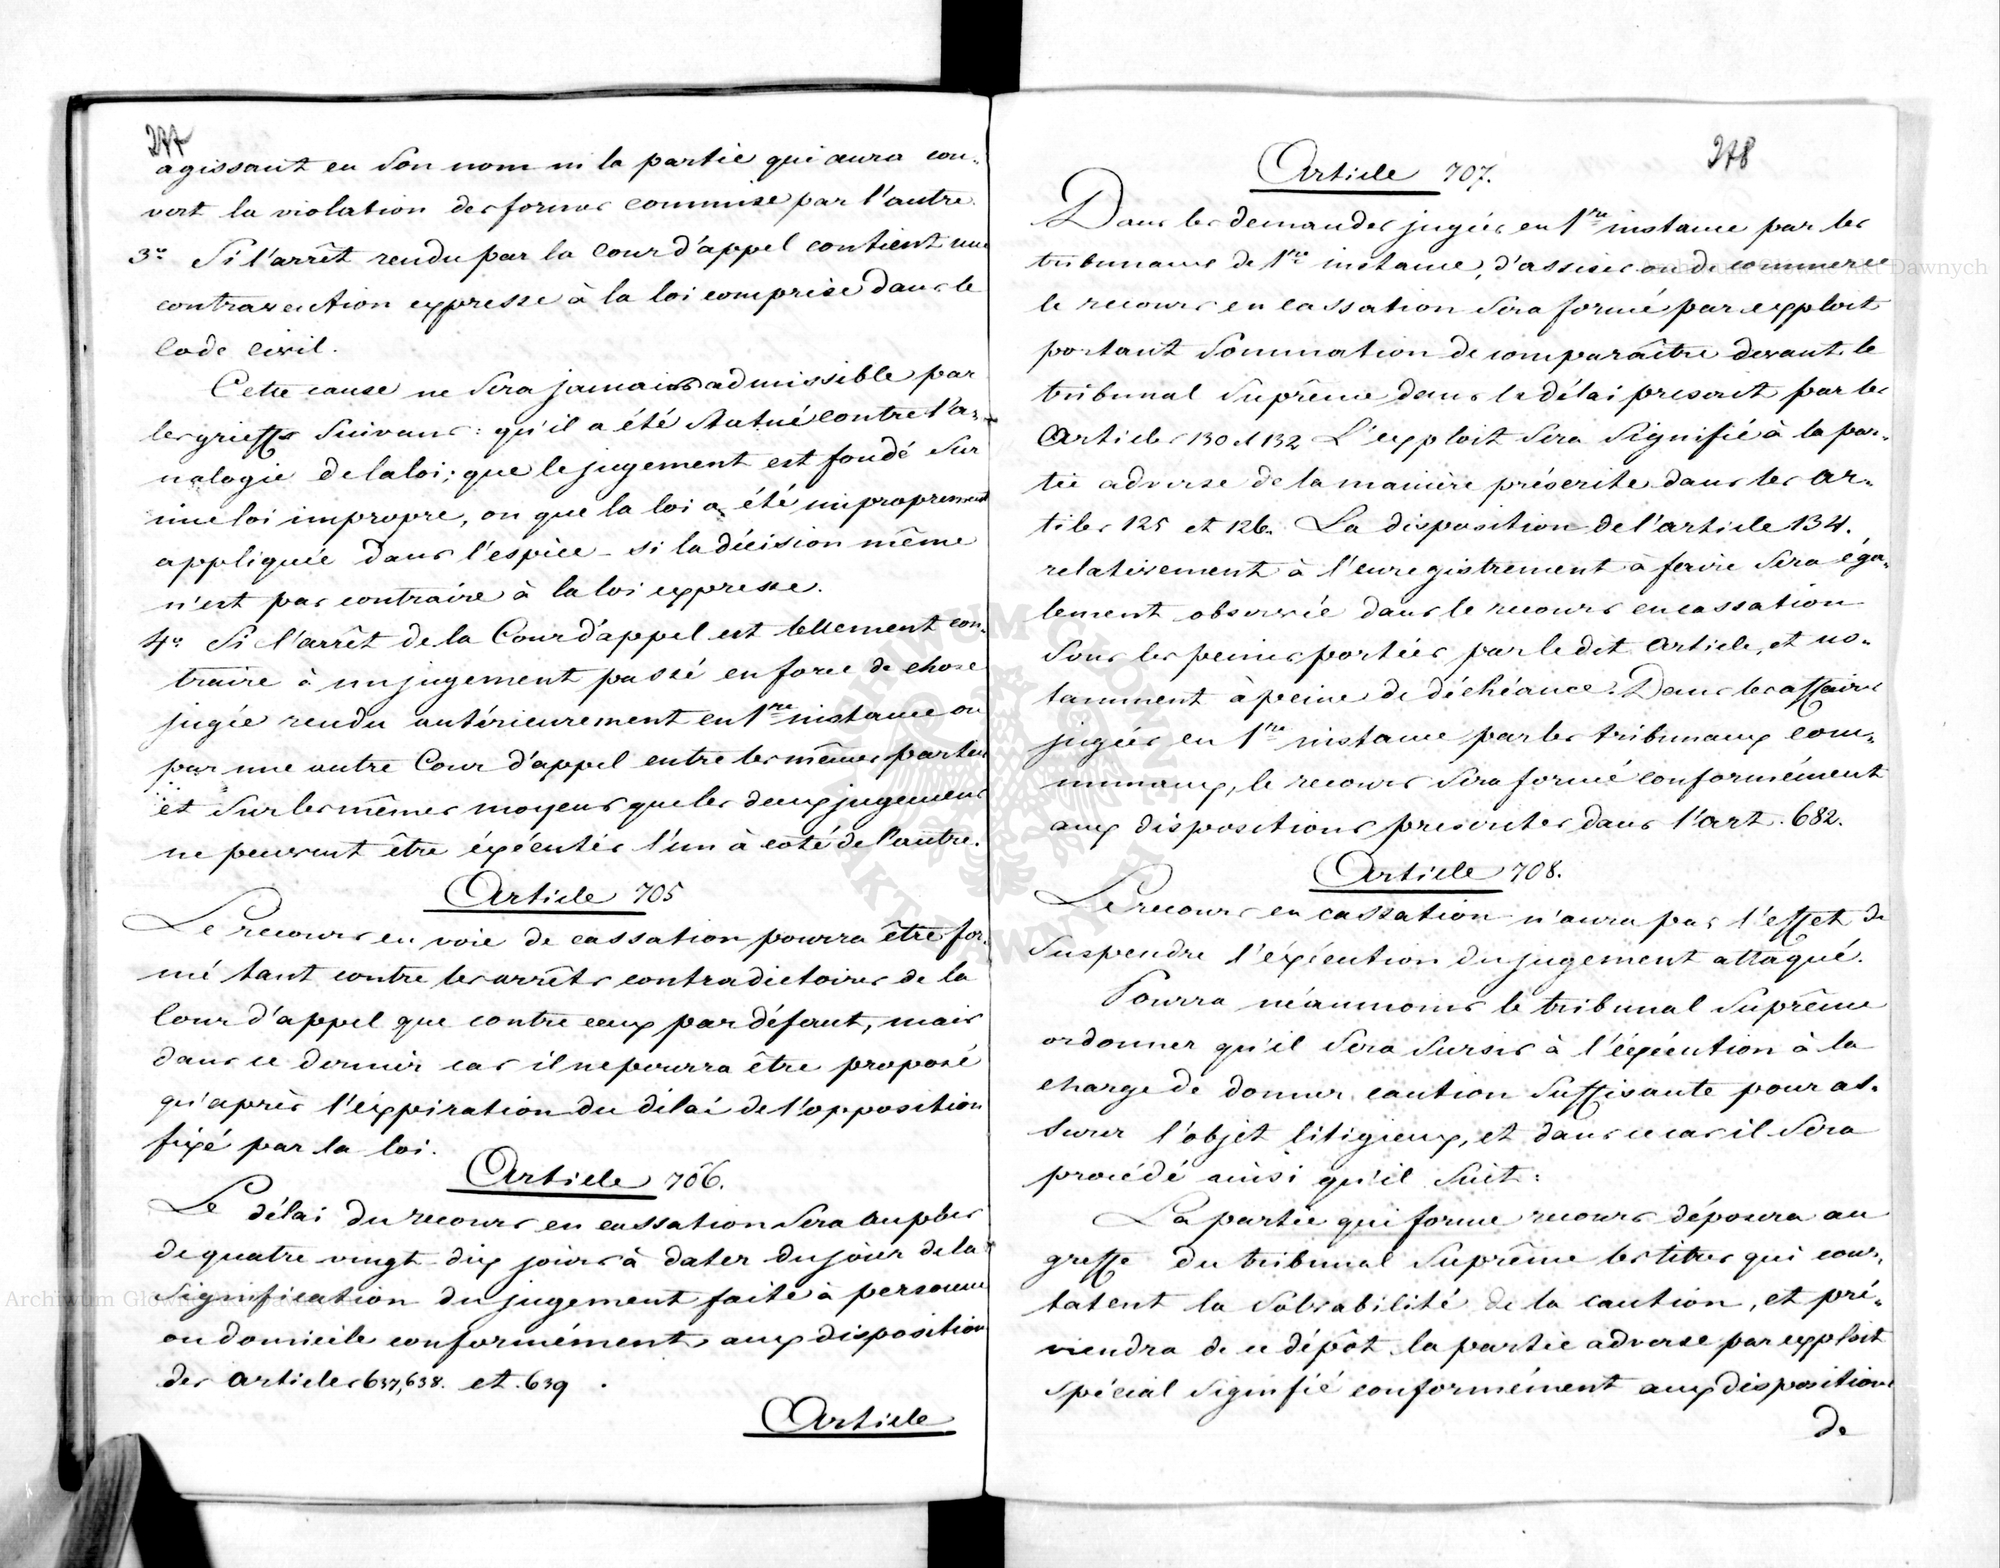 277
agissant en son nom ni la partie qui aura cou-
vert la violation des formes commise par l'autre.
3º Si l'arrêt rendu par la cour d'appel contient une
contravention expresse à la loi comprise dans le
Code civil.
Cette cause ne sera jamais admissible par
les griefs suivans : qu'il a été statué contre l'a-
nalogie de la loi ; que le jugement est fondé sur
une loi impropre, ou que la loi a été improprement
appliquée dans l'espèce - si la décision même
n'est pas contraire à la loi expresse.
4º Si l'arrêt de la Cour d'appel est tellement con-
traire à un jugement passé en force de chose
jugée rendu antérieurement en 1re instance ou
par une autre Cour d'appel entre les mêmes parties
et sur les mêmes moyens que les deux jugemens
ne peuvent être éxécutés l'un à coté de l'autre.
Article 705
Le recours en voie de cassation pourra être for-
mé tant contre les arrêts contradictoires de la
Cour d'appel que contre ceux par défaut, mais
dans ce dernier cas il ne pourra être proposé
qu'après l'éxpiration du délai de l'opposition
fixé par la loi.
Article 706.
Le délai du recours en cassation sera au plus
de quatre vingt dix jours à dater du jour de la
signification du jugement faite à personne
ou domicile conformément aux disposition
des articles 637, 638. et 639 .
Article
278
Article 707.
Dans les demandes jugées en 1re instance par les
tribunaux de 1re instance, d'assises ou de commerce
le recours en cassation sera formé par exploit
portant sommation de comparaître devant le
tribunal suprême dans le délai prescrit par les
Articles 130 et 132 L'exploit sera signifié à la par-
tie adverse de la manière préscrite dans les ar-
ticles 125 et 126. La disposition de l'article 134.
relativement à l'enregistrement à faire sera éga-
lement observée dans le recours en cassation
sous les peines portées par le dit Article, et no-
tamment à peine de déchéance. Dans les affaires
jugées en 1re instance par les tribunaux com-
munaux, le recours sera formé conformément
aux dispositions prescrites dans l'art. 682.
Article 708.
Le recours en cassation n'aura pas l'effet de
suspendre l'éxécution du jugement attaqué.
Pourra néanmoins le tribunal suprême
ordonner qu'il sera sursis à l'éxécution à la
charge de donner caution suffisante pour as-
surer l'objet litigieux, et dans ce cas il sera
procédé ainsi qu'il suit :
La partie qui forme recours déposera au
greffe du tribunal suprême les titres qui cons-
tatent la solvabilité de la caution, et pré-
viendra de ce dépôt la partie adverse par exploit
spécial signifié conformément aux dispositions
de